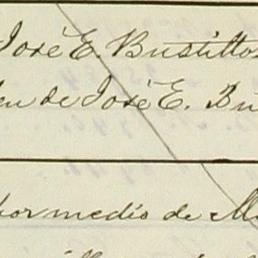 José E. Bustillos
en de José E. Bu
por medio de M